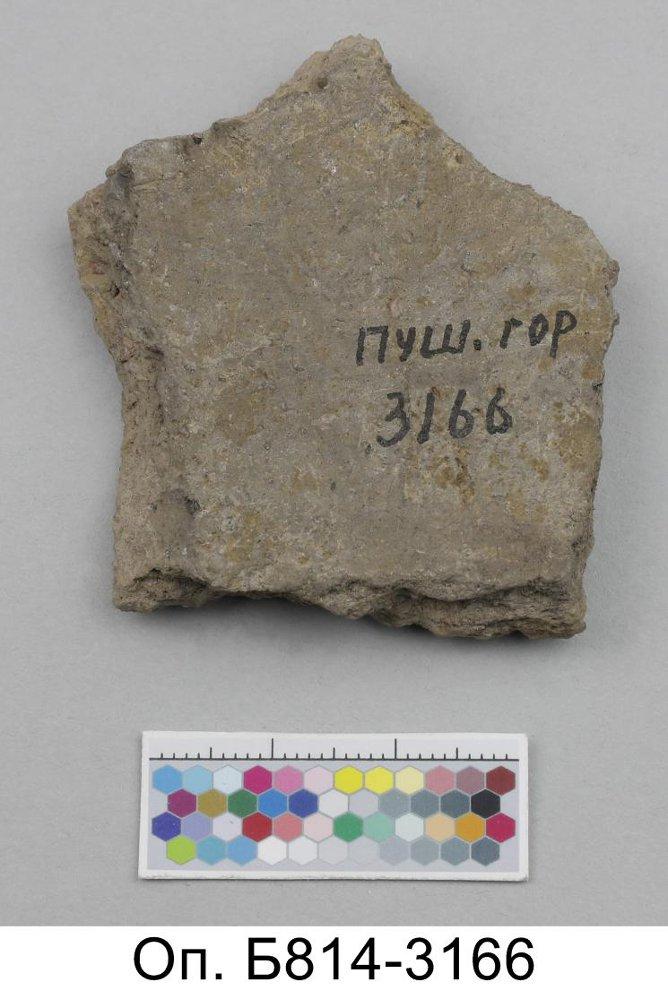 пуш. гор
3166
Оп. Б814-3166